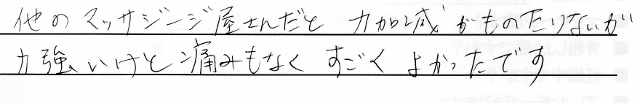 他のマッサジージ屋さんだと 力加減がものたりないが
力強いけど痛みもなく すごく よかったです